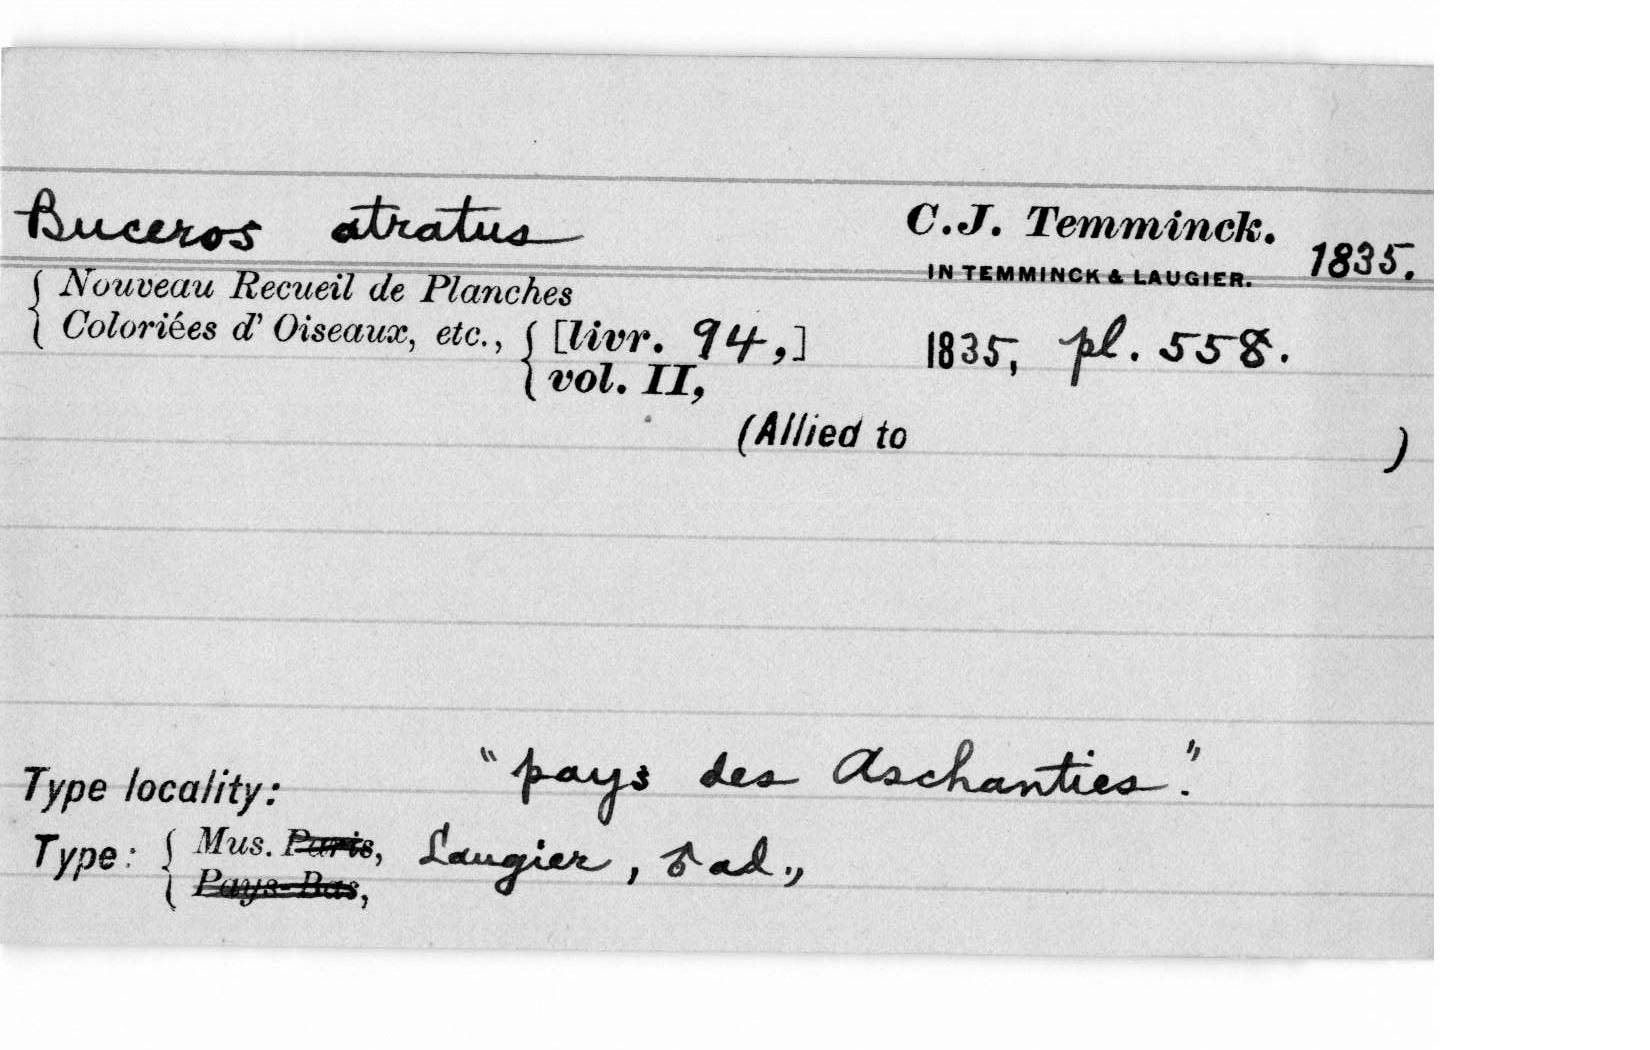 Buceros atratus C.J. Temminck. 1835.
IN TEMMINCK & LAUGIER.
Nouveau Recueil de Planches
Coloriées d' Oiseaux, etc., [livr. 94,] 1835, pl. 558.
vol. II,
(Allied to )
Type locality: "pays des Aschanties."
Type: Mus. Paris, Laugier, ♂ ad.,
Pays-Bas,